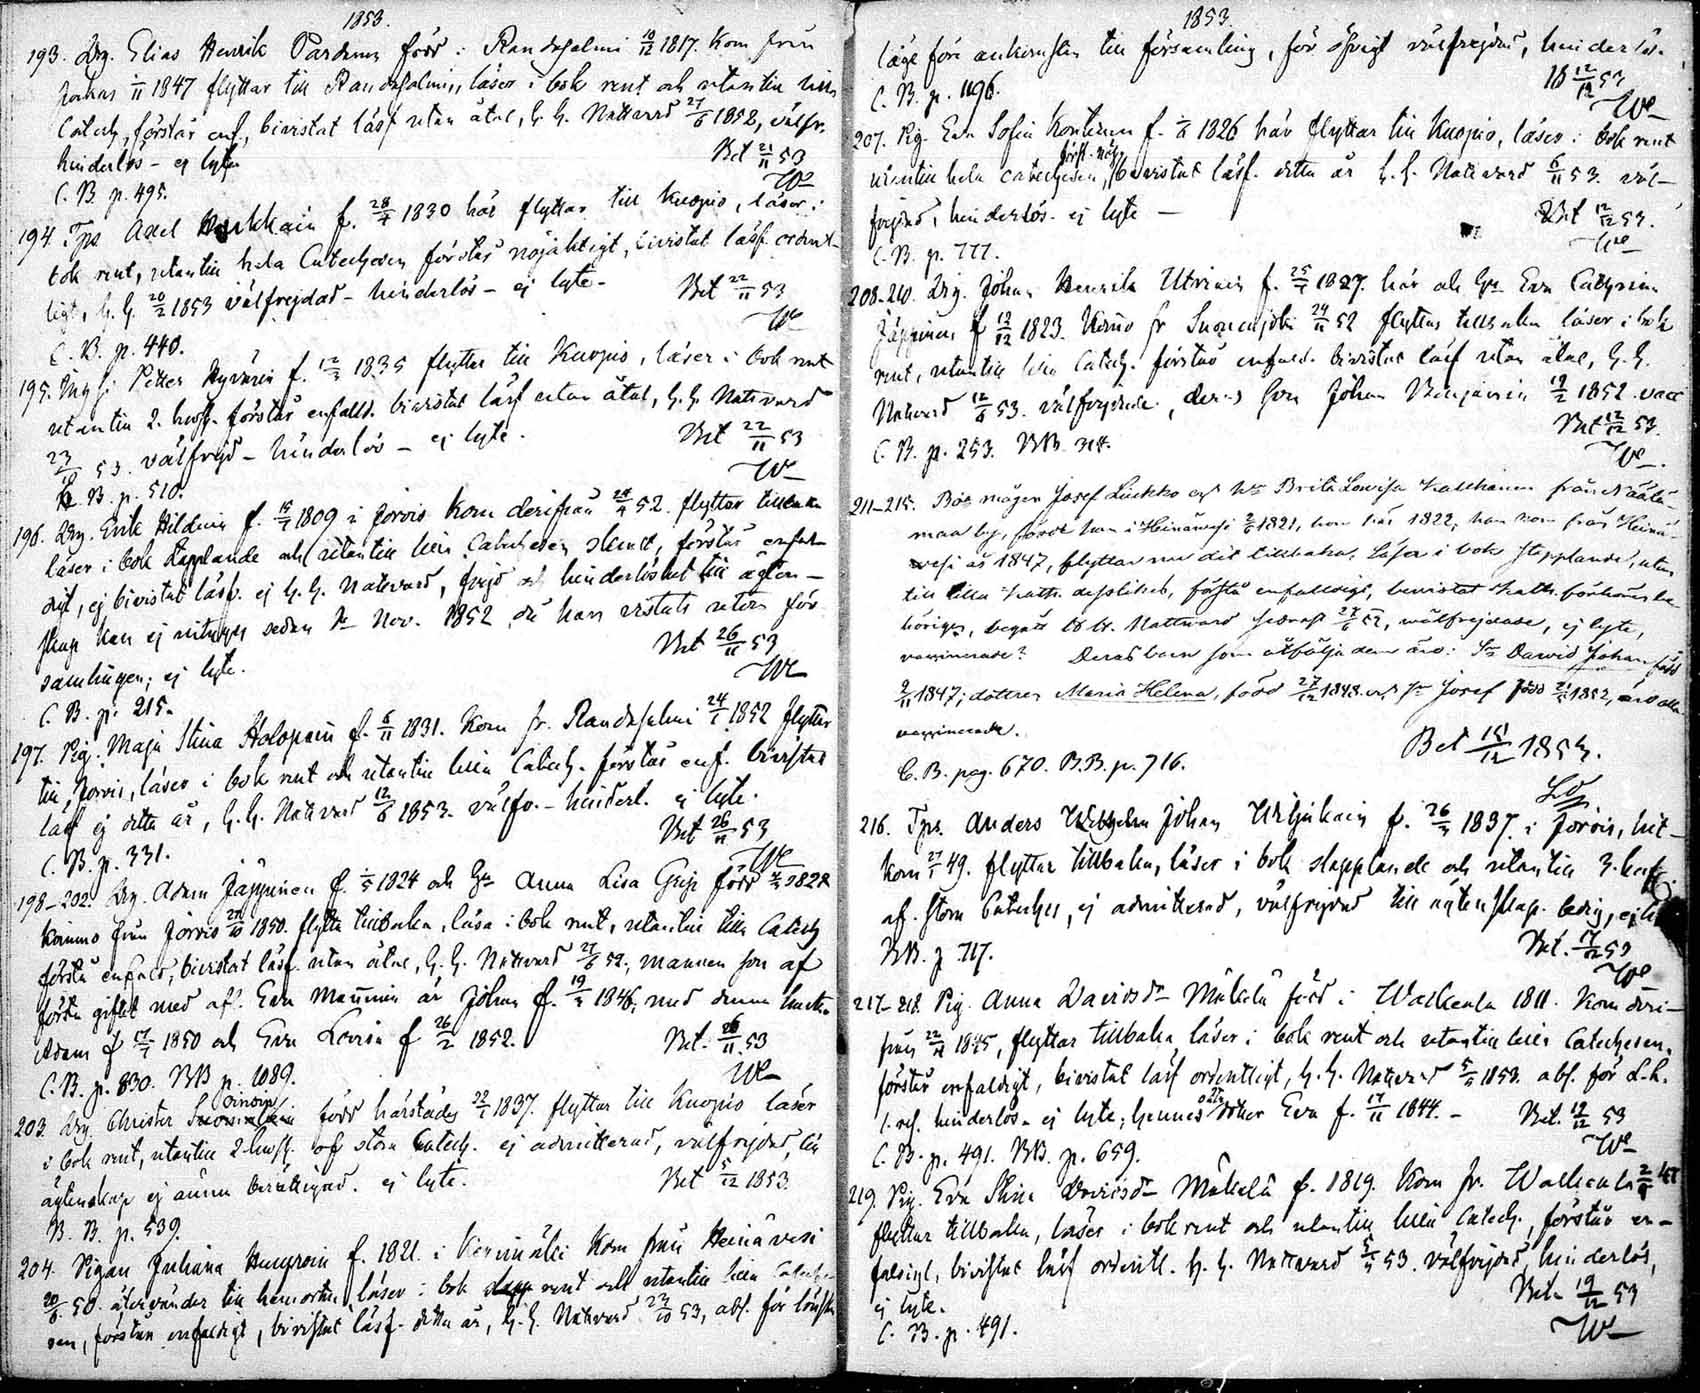 1853.
193. Drg. Elias Henrik Pardanen född i Randasalmi 10/12 1817. Kom från
Jorois 1847 flyttar till Randasalmi, läser i bok rent och utantill lilla
Catech. förstår enf., bivistat läsf. utan åtal, H. H. Nattvard 27/6 1852, välfr.
hinderlös - ej lyte
Bet 21/11 53
C. B. p. 495.
194. Tps Axel f. 28/7 1830 här flyttar till Kuopio, läser i
bok rent, utantill hela Catechesen förstår nöjaktigt, bivistat läsf. ordent-
ligt, H. H. 20/2 1853 välfrejdad - hinderlös - ej lyte -
Bet 22/11 53
C. B. p. 440.
195. Petter Hyvärin f. 12/3 1835 flyttar till Kuopio, läser i bok rent
utantill 2. hufst. förstår enfalld. bivistat läsf utan åtal, H. H. Nattvard
53. välfrejd - hinderlös - ej lyte.
Bet 22/11 53
C. B. p. 510.
196. Drg. Erik Hildein f. 1809 i Jorois kom derifrån 52. flyttar tillbaka
läser i bok stapplande och utantill lilla Catechesen slemt, förstår enfal-
digt, ej bivistat läsf. ej H. H. Nattvard, frejd och hinderlöshet till ägten-
skap kan ej vitnas sedan Nov. 1852 då han vistats utom för
samlingen; ej lyte.
Bet 26/11 53
C. B. p. 215.
197. Pig. Maja Stina Holopain f. 6/11 1831. Kom fr. Randasalmi 24/1 1852 flyttar
till Jorois, läser i bok rent och utantill lilla Catech. förstår enf. bivistat
läsf ej detta år, H. H. Nattvard 12/6 1853. välfr. - hinderl. ej lyte.
Bet 26/11 53
C. B. p. 331.
198-202. Drg. Adam Jäppinen f. 1824 och Hu Anna Lisa Grip född 1828
kommo från Jorois 1850. flytta tillbaka, läsa i bok rent, utantill lilla Catech
förstå enfald, bivistat läsf. utan åtal, H. H. Nattvard 27/6 52., mannen son af
första giftet med afl. Eva är Johan f. 19/2 1846, med denna hustru
Adam f 17/7 1850 och Eva Lovisa f 26/2 1852.
Bet. 26/11 53
C. B. p. 830. BB p. 1089.
203. Drg Christer född härstädes 1837. flyttar till Kuopio läser
i bok rent, utantill 2 hufst. af stora Catech. ej admitterad, välfrejdad, till
ägtenskap ej ännu berättigad. ej lyte.
Bet 5/12 1853
B. B. p. 539.
204. Pigan Juliana f. 1821. i Kerimäki kom från Heinävesi
50. återvänder till hemorten, läser i bok rent och utantill lilla Cateche-
sen, förstår enfaldigt, bivistat läsf. detta år, H. H. Nattvard 23/10 53, abs. för
1853.
läge före ankomsten till församling, för öfrigt välfrejdad, hinderlös.
12/12 53
C. B. p. 1196.
207. Pig. Eva Sofia Kontinen f. 1826 här flyttar till Kuopio, läser i bok rent
utantill hela catechesen, först. nöj. bivistat läsf. detta år H. H. Nattvard 6/11 53. väl-
frejdad, hinderlös - ej lyte -
Bet 12/12 53.
C. B. p. 777.
208-210. Drg. Johan Henrik Utriain f. 25/1 1827. här och Hu Eva Cathrina
Jäppinen f 13/12 1823. Kommo fr Suonenjoki 52 flyttar tillbaka läser i bok
rent, utantill lilla Catech. förstår enfald. bivistat läsf utan åtal, H. H.
Nattvard 12/6 53. välfrejdade, deras son Johan Benjamin 19/2 1852. vacc
Bet 12/12 53.
C. B. p. 253. BB. 314.
211-215. Bos mågen Josef Luukko och hu Brita Lovisa Kaukkanen från
maa by, född han i Heinävesi 1821, hon här 1822, han kom från Heinä-
vesi år 1847, flyttar nu dit tillbaka. Läsa i bok stapplande, utan
till lilla Kath. desslikes, förstå enfaldigt, bevistat Kath. förhören be-
höriga, begått H. H. Nattvard senast 52, wälfrejdade, ej lyte,
vaxinerade? Deras barn som åtfölja dem äro: Sn Dawid Johan född
2/11 1847; dottren Maria Helena, född 27/12 1848. och Sn Josef född 1852, äro alla
vaxinerade.
Bet 15/12 1853.
C. B. pag. 670. B.B. p. 716.
216. Tps. Anders Johan f. 26/3 1837. i Jorois, hit-
kom 49. flyttar tillbaka, läser i bok stapplande och utantill 3. hufst.
af stora Catechs, ej admitterad, välfrejdad till ägtenskap ledig, ej
Bet. 17/12 53
BB. p. 717.
217-218. Pig. Anna Davidsdr Mäkelä född i Walkeala 1811. Kom deri-
från 22/11 1845, flyttar tillbaka, läser i bok rent och utantill lilla Catechesen,
förstår enfaldigt, bivistat läsf ordentligt, H. H. Nattvard 5/5 1853. abs. för L. h.
hinderlös - ej lyte; hennes oäkta dotter Eva f. 17/11 1844. -
Bet. 19/12 53
C. B. p. 491. BB. p. 659.
219. Pig. Eva Stina Davidsdr Mäkelä f. 1819. kom fr. Walkeala 47
flyttar tillbaka, läser i bok rent och utantill lilla Catech., förstår en-
faldigt, bivistat läsf ordentl. H. H. Nattvard 5/5 53. välfrejdad, hinderlös,
ej lyte.
Bet. 19/12 53
C. B. p. 491.